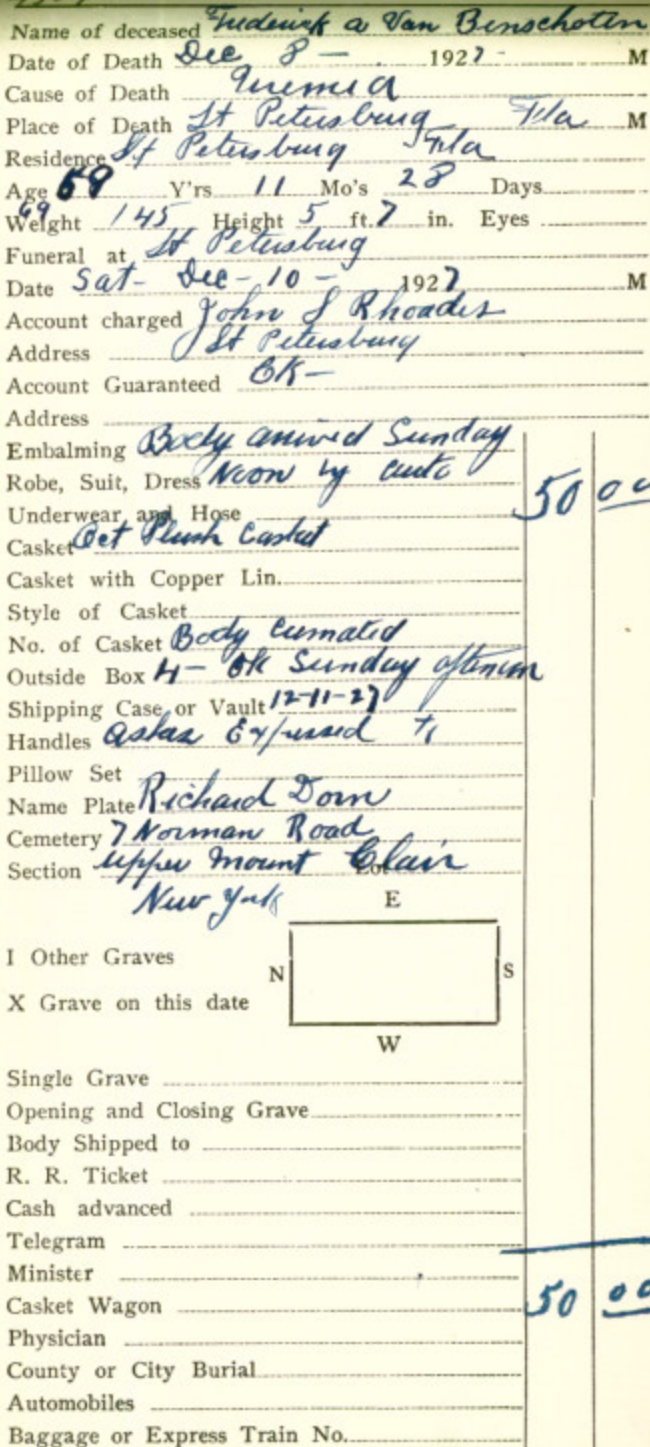 Name of deceased Frederick a Van Benschoten
Date of Death Dec 8 - 1927 - M
Cause of Death Uremia
Place of Death St Petersburg Fla M
Residence St Petersburg Fla
Age 59 Y'rs 11 Mo's 28 Days
69
Weight 145 Height 5 ft. 7 in. Eyes
Funeral at St Petersburg
Date Sat - Dec - 10 - 1927 M
Account charged John S Rhoades
Address St Petersburg
Account Guaranteed OK -
Address
Embalming Body arrived Sunday
Robe, Suit, Dress Noon by auto
Underwear and Hose 50 00
Casket Oct Plush Casket
Casket with Copper Lin.
Style of Casket
No. of Casket Body cremated
Outside Box 4 - OK Sunday afternoon
Shipping Case or Vault 12-11-27
Handles Ashes Expressed to
Pillow Set
Name Plate Richard Dorn
Cemetery 7 Norman Road
Section Upper Mount Clair
New York
E
I Other Graves
N S
X Grave on this date
W
Single Grave
Opening and Closing Grave
Body Shipped to
R. R. Ticket
Cash advanced
Telegram
Minister
Casket Wagon 50 00
Physician
County or City Burial
Automobiles
Baggage or Express Train No.